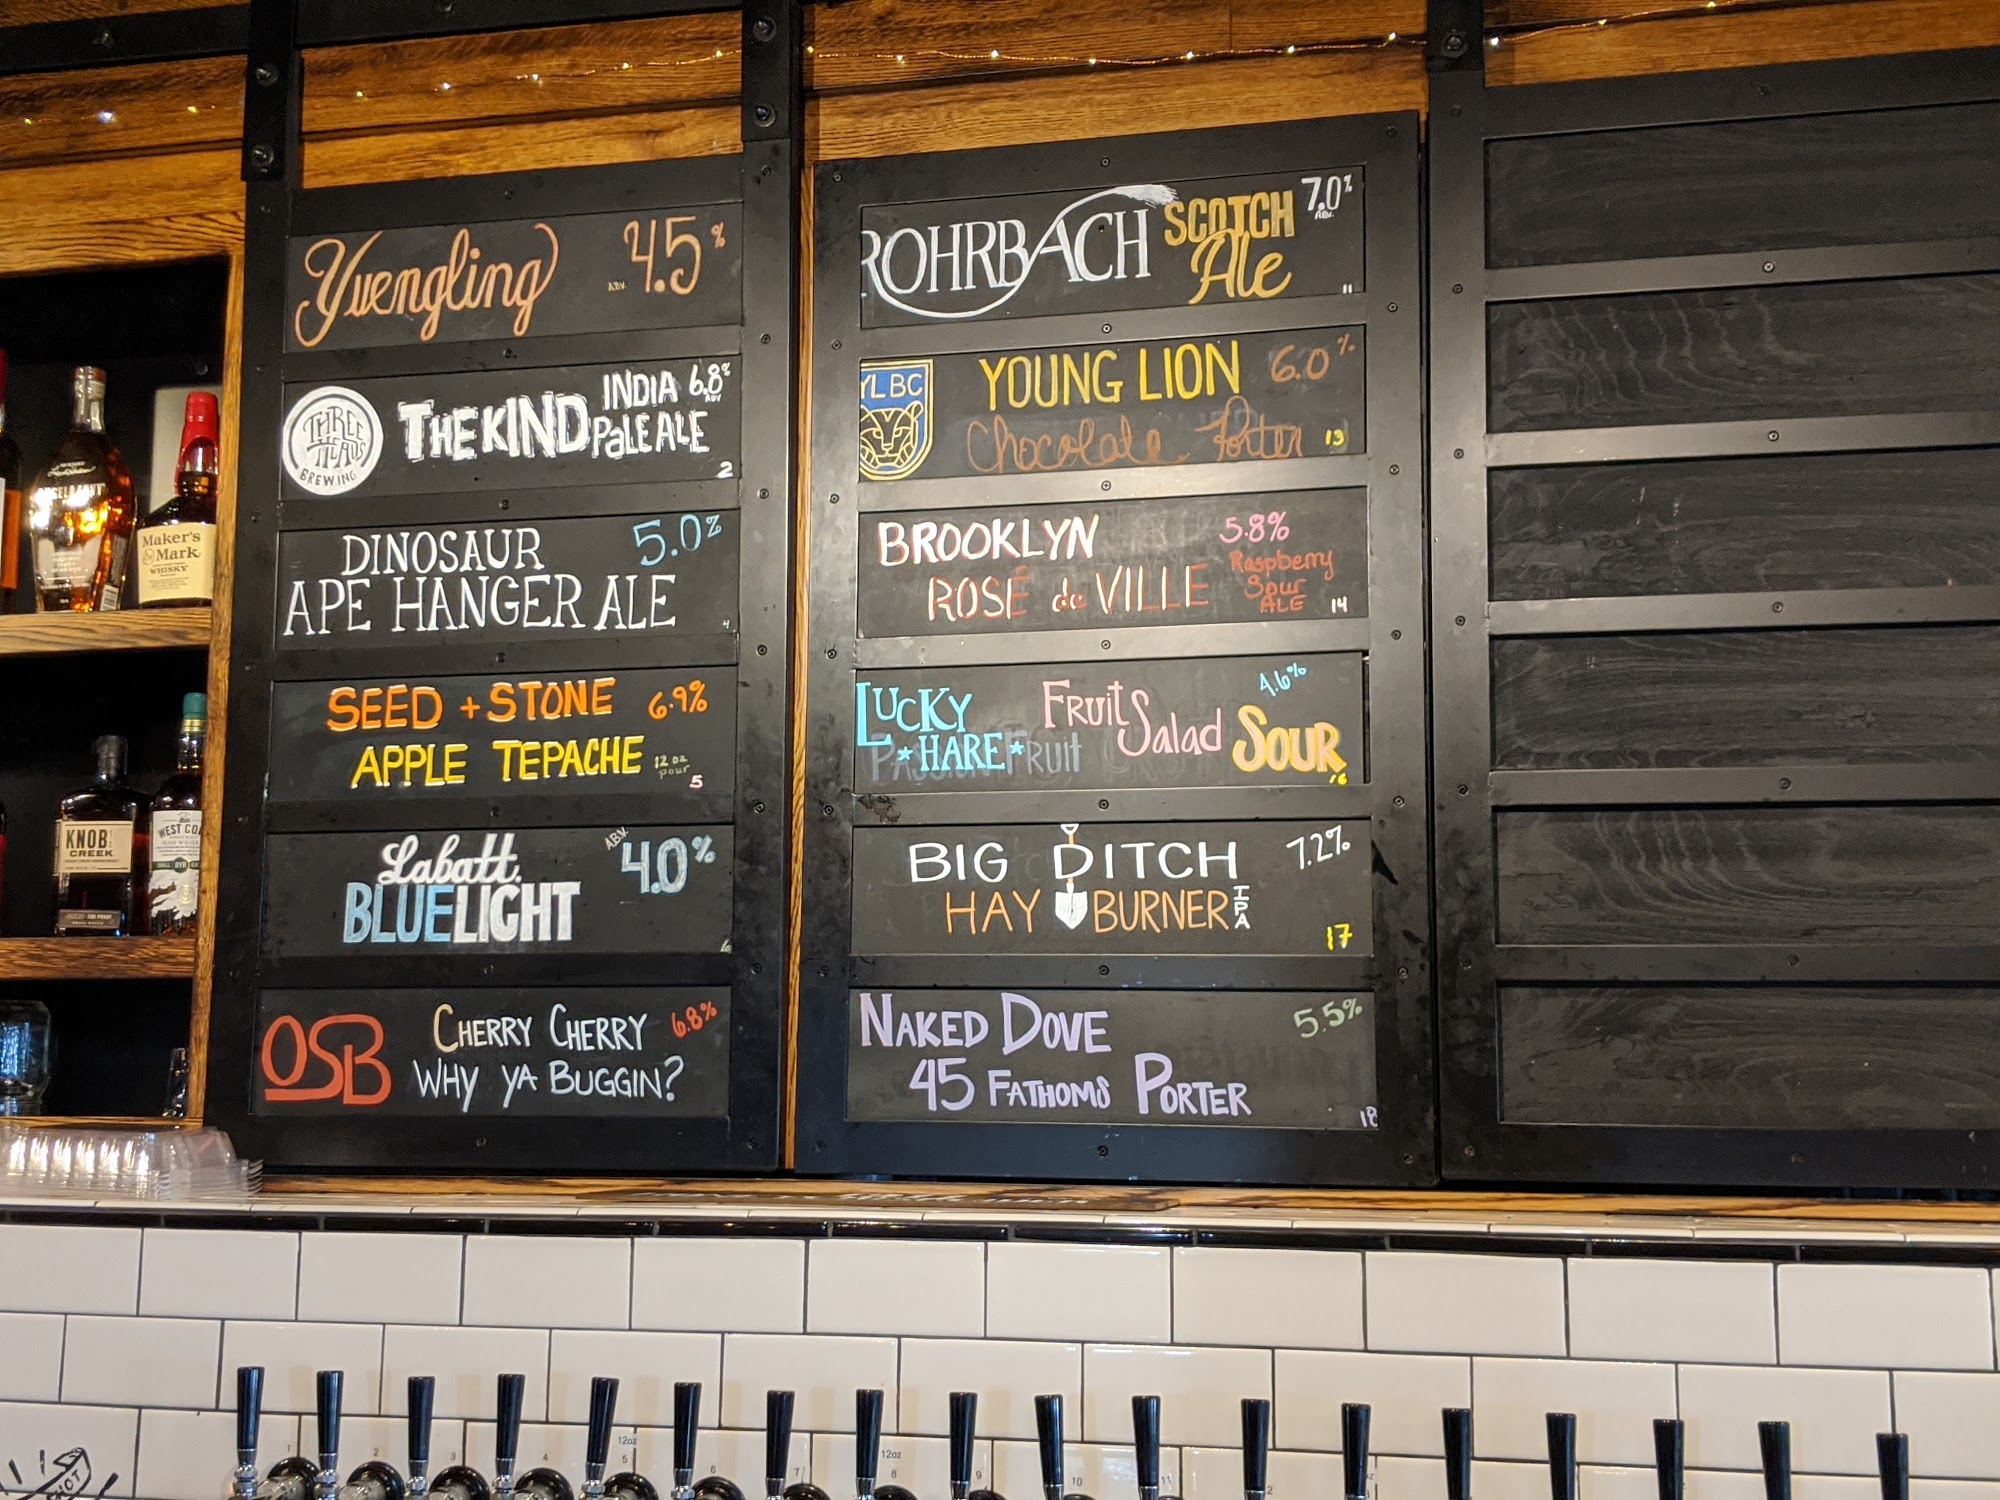 Yuengling ABV. 4.5%
THREE HEADS BREWING
THE KIND INDIA PALE ALE 6.8% ABV
2
DINOSAUR 5.0%
APE HANGER ALE
4
SEED + STONE 6.9%
APPLE TEPACHE 12 oz pour
5
Labatt. A.B.V. 4.0%
BLUE LIGHT
6
OSB CHERRY CHERRY 6.8%
WHY YA BUGGIN?
ROHRBACH SCOTCH Ale 7.0% ABV.
11
YLBC YOUNG LION 6.0%
Chocolate Porter 13
BROOKLYN 5.8%
ROSÉ de VILLE Raspberry Sour ALE 14
LUCKY *HARE* FRuit Salad SOUR 4.6%
PASSION FRuit
16
BIG DITCH 7.2%
HAY BURNER IPA
17
NAKED DOVE 5.5%
45 FATHOMS PORTER
18
Maker's Mark
WHISKY
KNOB CREEK
WEST CO
1
2
3
4
12oz
5
6
7
12oz
8
9
10
11